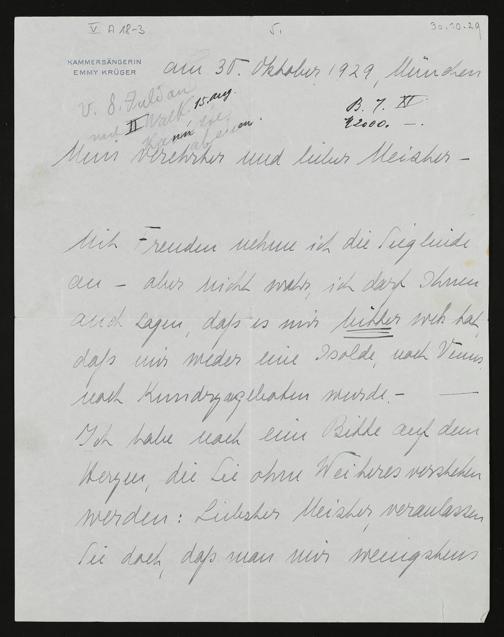 V A 18-3
5.
30.10.29
KAMMERSÄNGERIN
EMMY KRÜGER
am 30. Oktober 1929, München
v. 8. Juli an
II Walk 15. Aug.
B. 7. XI
2000. —.
Mein verehrter und lieber Meister –
Mit Freuden nehme ich die Sieglinde
an – aber nicht wahr, ich darf Ihnen
auch sagen, daß es mir bitter weh tat,
daß mir weder eine Isolde, noch Venus
noch Kundry angeboten wurde. –
Ich habe noch eine Bitte auf dem
Herzen, die Sie ohne Weiteres verstehen
werden: Liebster Meister, veranlassen
Sie doch, daß man mir wenigstens